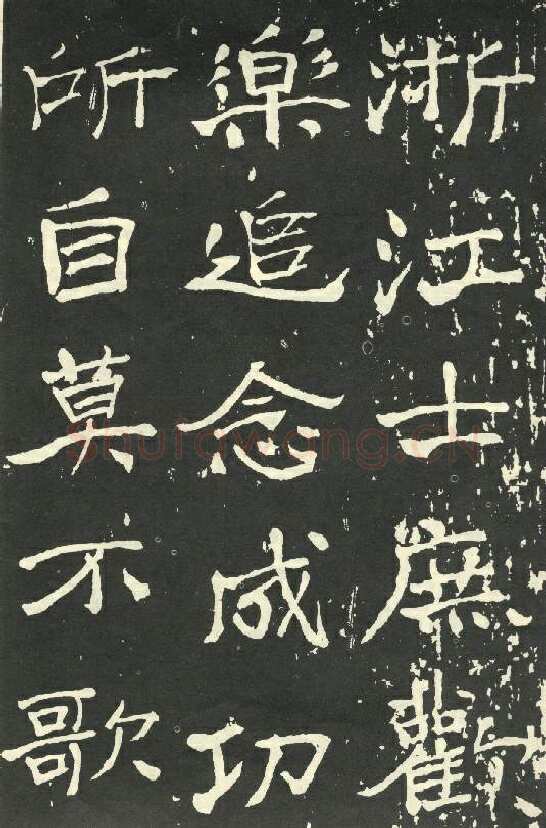 浙江士庶歡
樂追念成功
所自莫不歌
Shufawang.CN